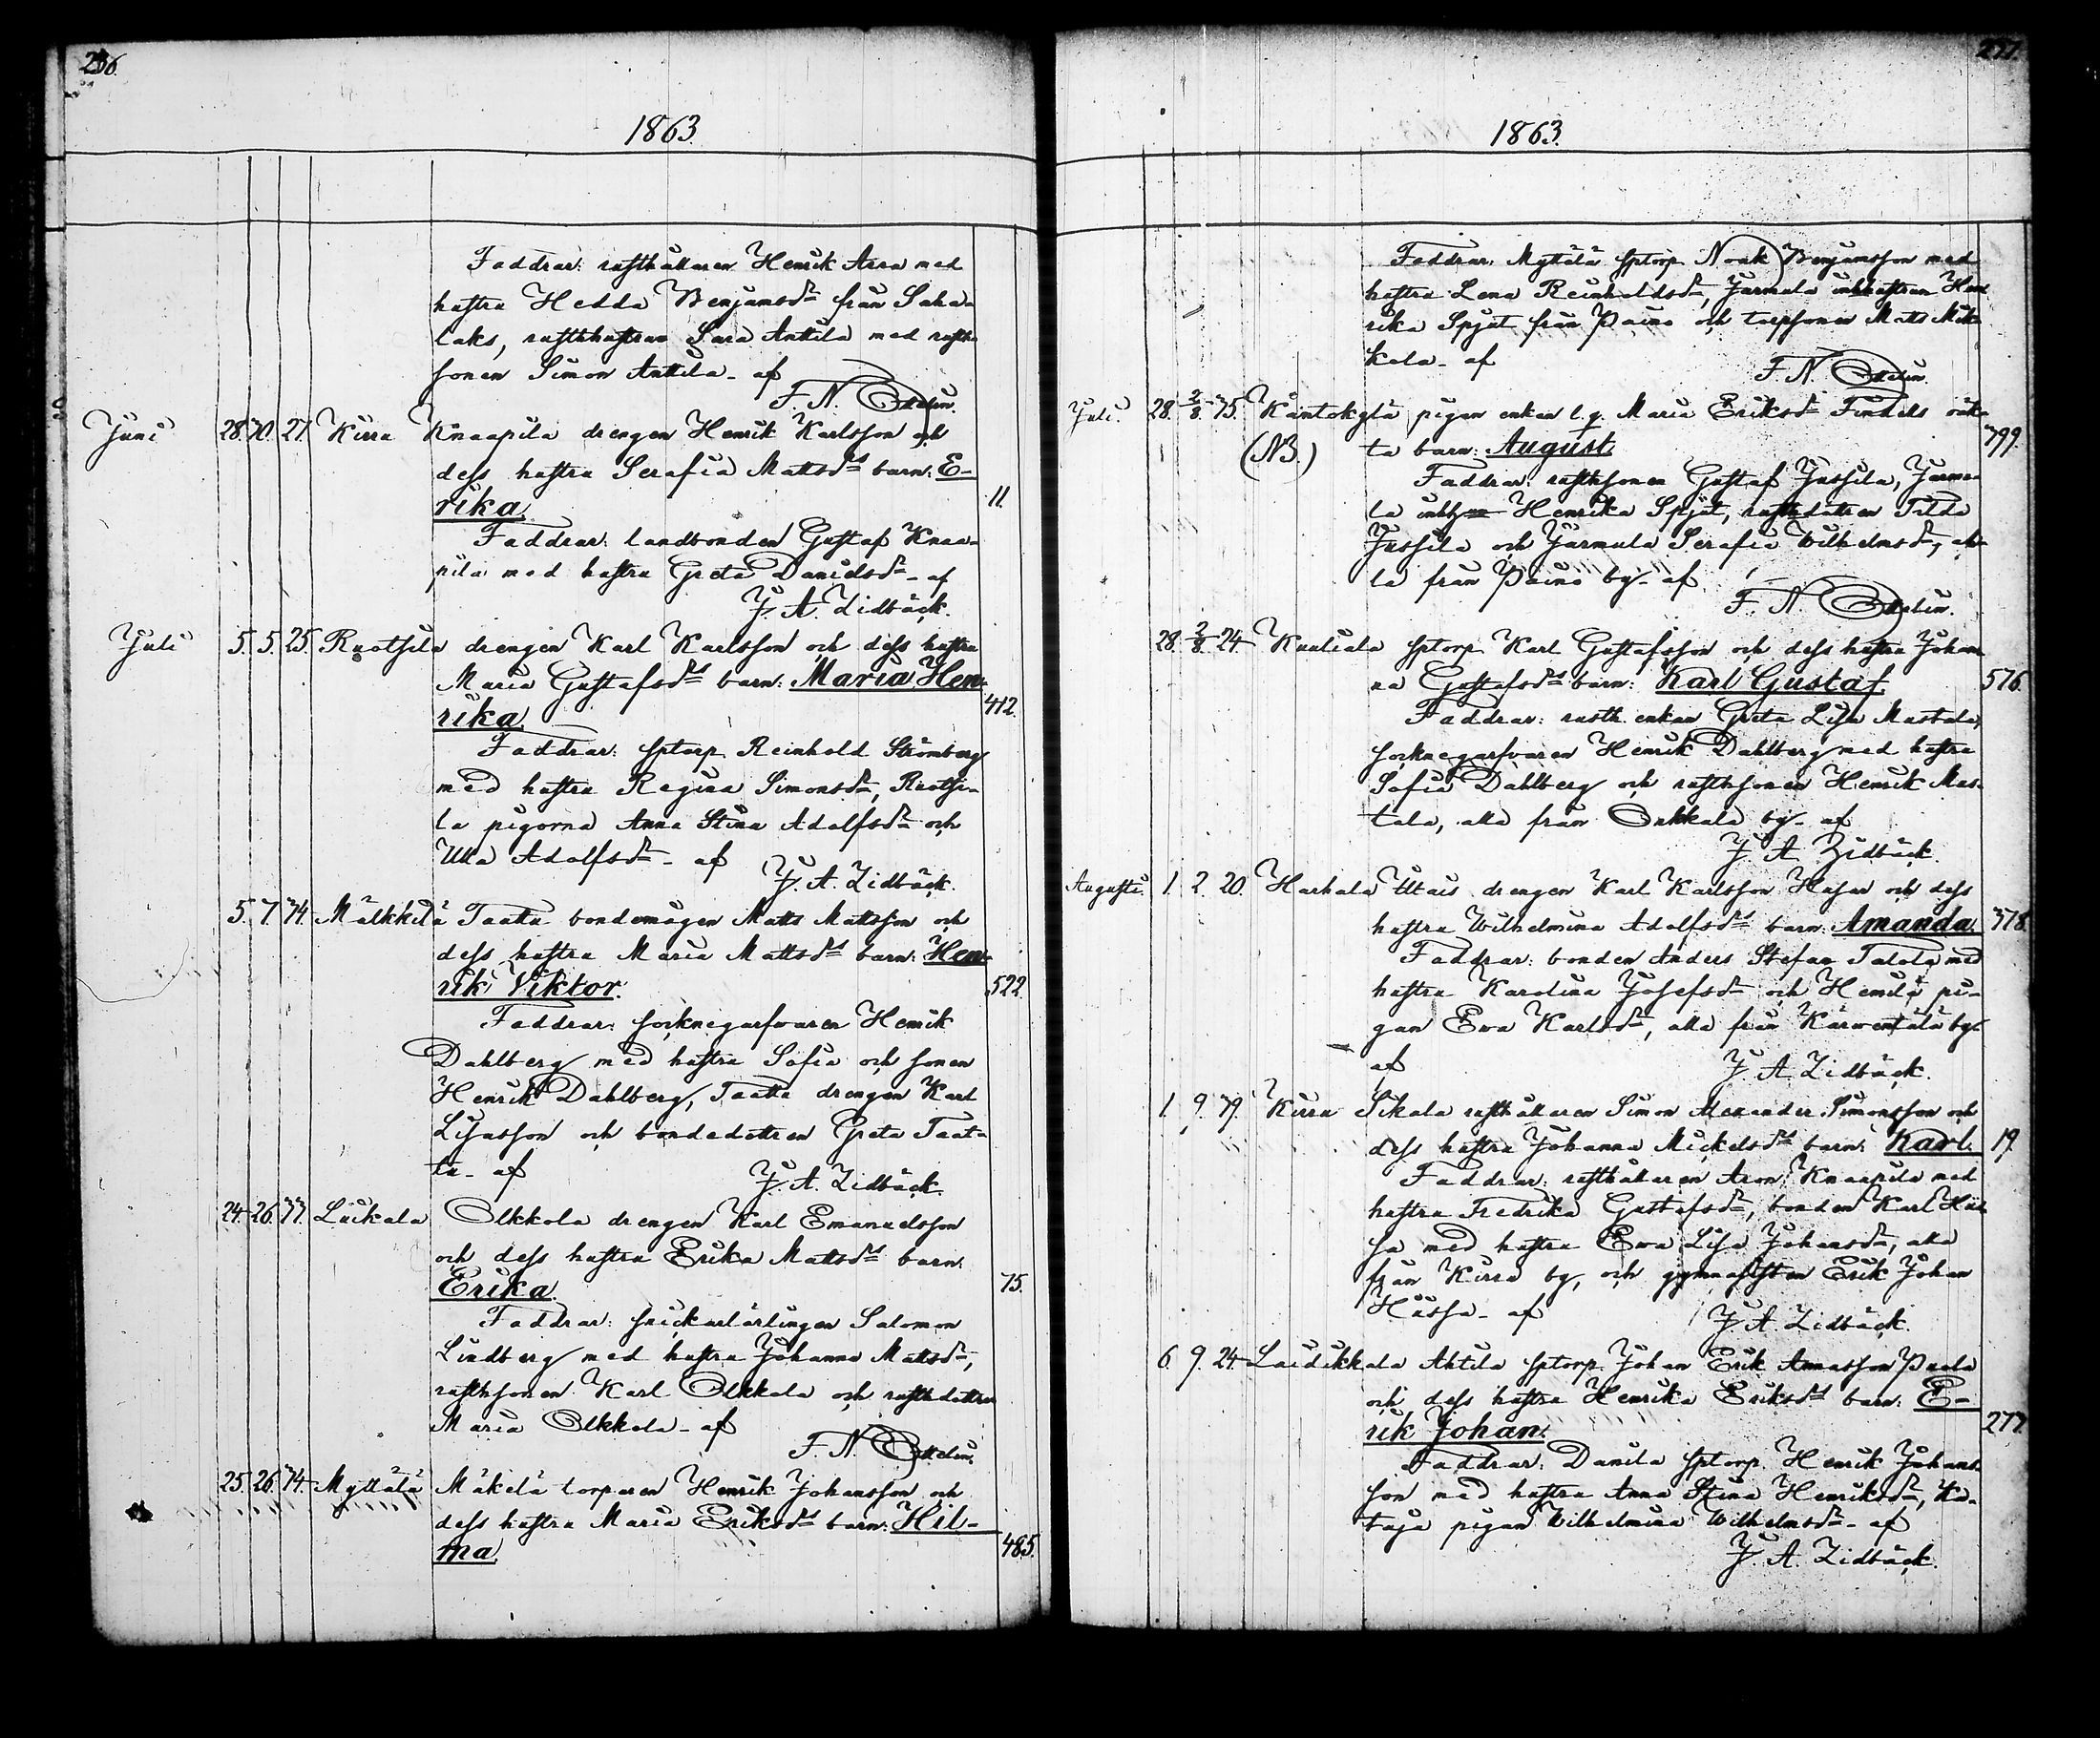 236.
1863.
Faddrar: rusthållaren Henrik Arra med
hustru Hedda Benjamsdr från Saha-
laks, rusthustrun Sara Anttila med rusth.
sonen Simon Anttila - af
F. N.
Juni 28. 70. 27. Kirra Knaapila drengen Henrik Karlsson och
dess hustru Serafia Mattsdrs barn: E-
rika. 11.
Faddrar: landbonden Gustaf Knaa-
pila med hustru Greta Danielsdr - af
J. A. Zidbäck.
Juli 5. 5. 25. Ruotsila drengen Karl Karlsson och dess hustru
Maria Gustafsdrs barn: Maria Hen-
rika. 412.
Faddrar: sptorp. Reinhold Strömberg
med hustru Regina Simonsdr, Ruotsi-
la pigorna Anna Stina Adolfsdr och
Ulla Adolfsdr - af
J. A. Zidbäck.
5. 7. 74. Mälkkilä Taatta bondemågen Matts Mattsson och
dess hustru Maria Mattsdrs barn: Hen-
rik Viktor. 522.
Faddrar: socknegarfvaren Henrik
Dahlberg med hustru Sofia och sonen
Henrik Dahlberg, Taatta drengen Karl
Lisasson och bondedottren Greta Taat-
ta - af
J. A. Zidbäck.
24. 26. 77. Luikala Olkkola drengen Karl Emanuelsson
och dess hustru Erika Mattsdrs barn:
Erika. 75.
Faddrar: snickarlärlingen Salomon
Lindberg med hustru Johanna Mattsdr,
rusthsonen Karl Olkkola och rusthdottren
Maria Olkkola - af
F. N.
25. 26. 74. Myttälä Mäkelä torparen Henrik Johansson och
dess hustru Maria Eriksdrs barn: Hil-
ma. 485.
277.
1863.
Faddrar: Myttälä sptorp. Noak Benjamsson med
hustru Lena Reinholdsdr, Jurmula inhhustrun Hen-
rika Spjut från Paino och torpsonen Matts Mik-
kola - af
F. N.
Juli. 28. 2/8. 75. Kantokylä pigan enkan l. g. Maria Eriksdr Findels oäk-
(NB.) ta barn: August. 799.
Faddrar: rusthsonen Gustaf Jussila, Jurmu-
la Henrika Spjut, rusthdottren Tilda
Jussila och Jurmula Serafia Wilhelmsdr, al-
la från Paino by - af
F. N.
28. 2/8. 24. Kuuliala sptorp. Karl Gustafsson och dess hustru Johan-
na Gustafsdrs barn: Karl Gustaf. 576.
Faddrar: rusth. enkan Greta Lisa Mustala,
socknegarfvaren Henrik Dahlberg med hustru
Sofia Dahlberg och rusthsonen Henrik Mus-
tala, alla från Onkkala by - af
J. A. Zidbäck.
Augusti. 1. 2. 20. Harhala Utais drengen Karl Karlsson och dess
hustru Wilhelmina Adolfsdrs barn: Amanda. 378.
Faddrar: bonden Anders Stefan Talola med
hustru Karolina Josefsdr och Hemilä pi-
gan Ewa Karlsdr, alla från Kärwentälä by -
af
J. A. Zidbäck.
1. 9. 79. Kirra Sikala rusthållaren Simon Alexander Simonsson och
dess hustru Johanna Mickelsdrs barn: Karl. 19.
Faddrar: rusthållaren Aron Knaapila med
hustru Fredrika Gustafsdr, bonden Karl Hus-
sa med hustru Ewa Lisa Johansdr, alla
från Kirra by, och gymnasisten Erik Johan
Hussa - af
J. A. Zidbäck.
6. 9. 24. Laidikkala Ahtila sptorp. Johan Erik Annasson
och dess hustru Henrika Eriksdrs barn: E-
rik Johan. 277.
Faddrar: Danila sptorp. Henrik Johans-
son med hustru Anna Stina Henriksdr, Ka-
taja pigan Wilhelmina Wilhelmsdr - af
J. A. Zidbäck.